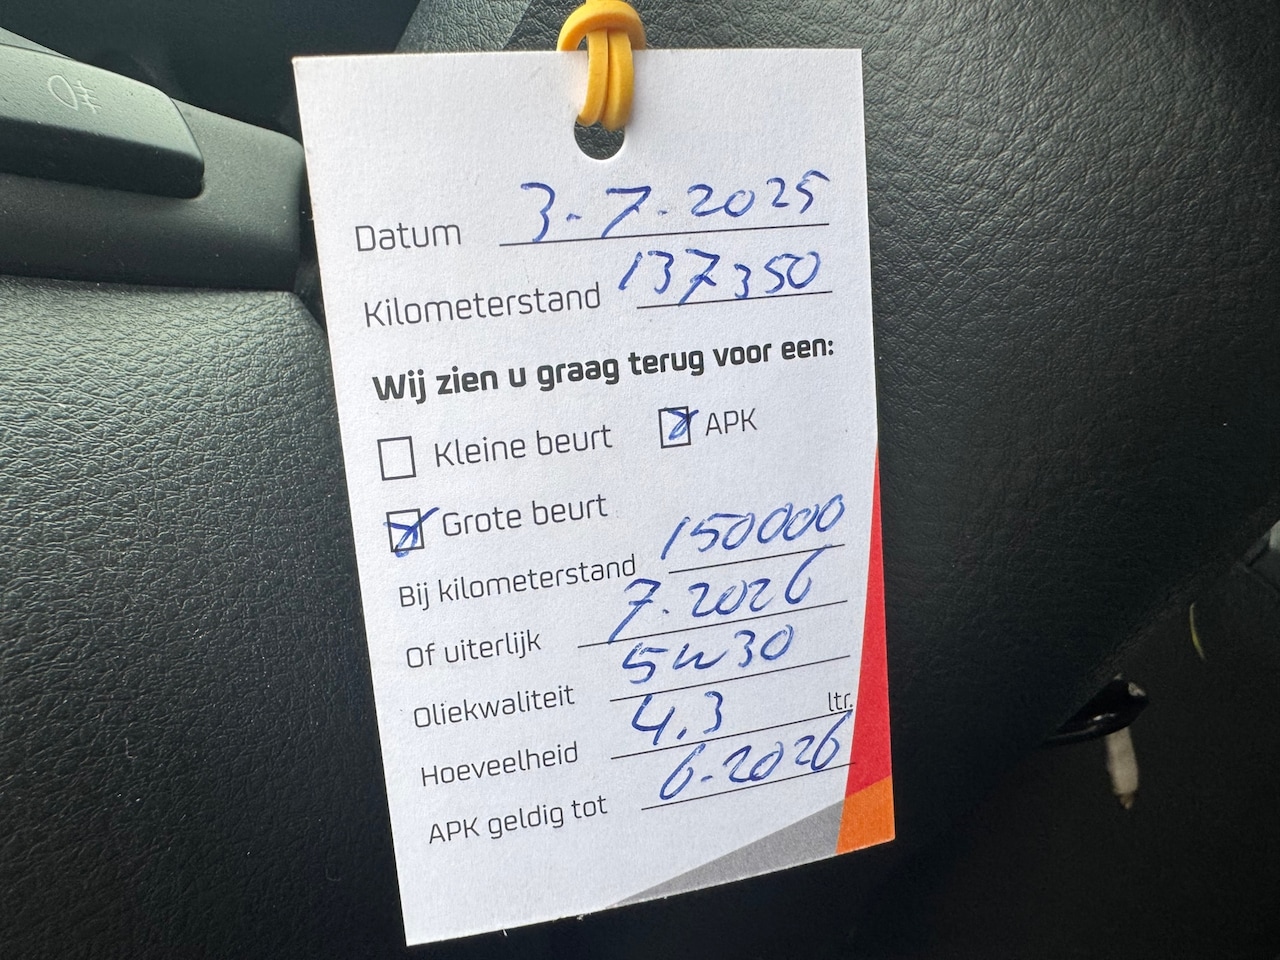 Datum 3-7-2025
Kilometerstand 137350
Wij zien u graag terug voor een:
Kleine beurt APK
Grote beurt
Bij kilometerstand 150000
Of uiterlijk 7-2026
Oliekwaliteit 5w30
Hoeveelheid 4,3 ltr.
APK geldig tot 6-2026